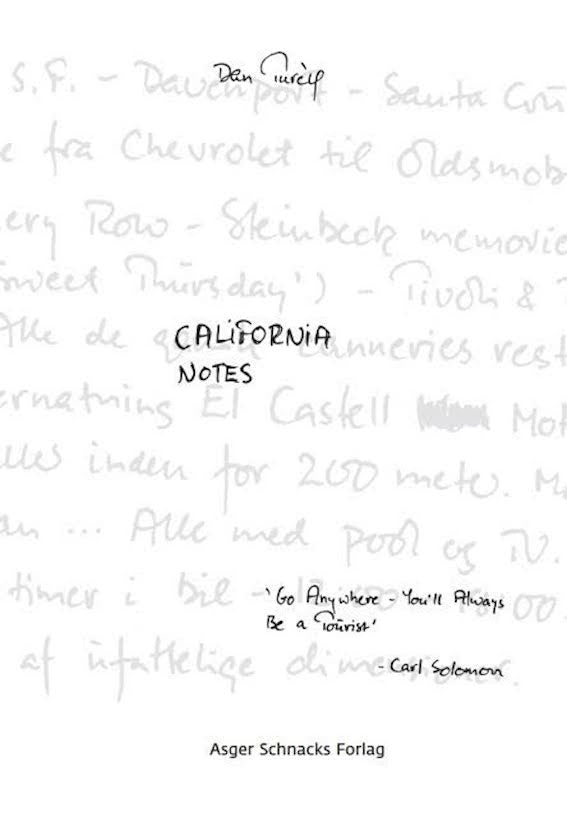 Dan Turèll
S.F. - Davenport - Santa Cru
e fra Chevrolet til Oldsmob
ery Row - Steinbeck memorie
Sweet Thursday') - Tivoli &
Alle de canneries rest
CALIFORNIA
NOTES
ernatning El Castell Mot
lles inden for 200 meter. M
an ... Alle med pool og TV.
timer i bil 00
'Go Anywhere - You'll Always
Be a Tourist'
af ufattelige dimensioner.
- Carl Solomon
Asger Schnacks Forlag